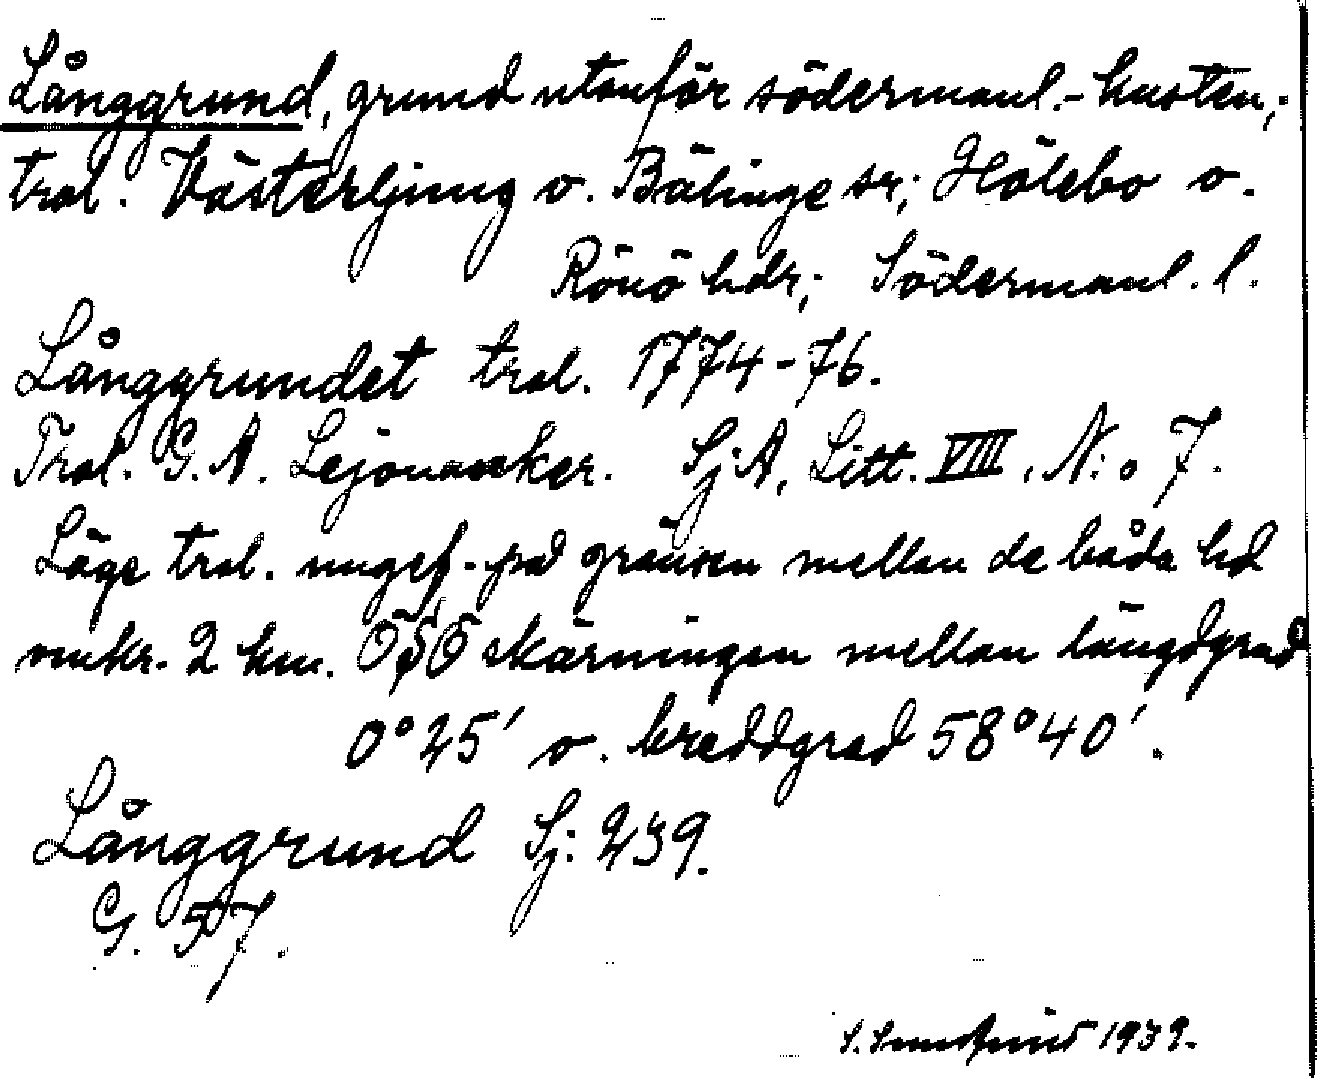 Långgrund, grund utanför södermanl.-kusten,;
trol. Västerljung o. Bälinge sr; Hölebo o.
Rönö hdr; Södermanl. l.
Långgrundet trol. 1774-76.
Trol. G. A. Lejonancker. Sj.A, Litt. VIII, N:o 7.
Läge trol. ungef. på gränsen mellan de båda hd
omkr. 2 km. ÖSÖ skärningen mellan längdgrad
0°25′ o. breddgrad 58°40′.
Långgrund Sj. 239.
G. 57.
S. 1939.